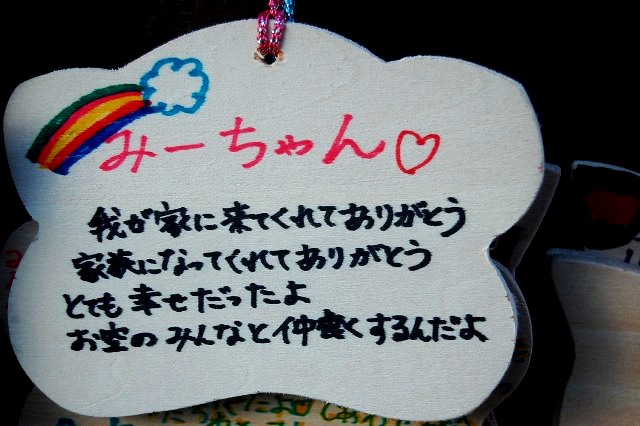 みーちゃん♡
我が家に来てくれてありがとう
家族になってくれてありがとう
とても幸せだったよ
お空のみんなと仲良くするんだよ